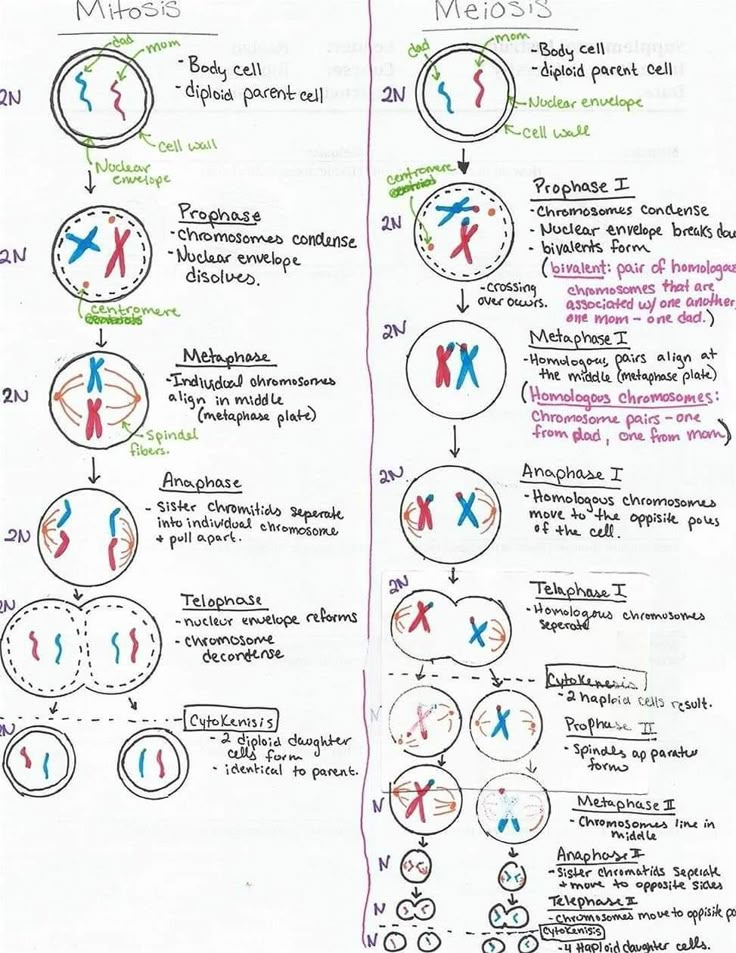 Mitosis
dad
mom
2N
- Body cell
- diploid parent cell
Cell wall
Nuclear
envelope
2N
Prophase
- Chromosomes condense
- Nuclear envelope
disolves.
centromere
Metaphase
2N
- Individual chromosomes
align in middle
(metaphase plate)
Spindel
fibers.
Anaphase
2N
- Sister chromitids seperate
into individual chromosome
+ pull apart.
Telophase
- nuclear envelope reforms
- chromosome
decondense
Cytokenisis
- 2 diploid daughter
cells form
- identical to parent.
Meiosis
dad
mom
2N
- Body cell
- diploid parent cell
Nuclear envelope
Cell wall
centromere
2N
Prophase I
- Chromosomes condense
- Nuclear envelope breaks
- bivalents form
(bivalent: pair of homologous
chromosomes that are
associated w/ one another,
one mom - one dad.)
- crossing
over occurs.
2N
Metaphase I
- Homologous pairs align at
the middle (metaphase plate)
(Homologous chromosomes:
chromosome pairs - one
from dad, one from mom)
2N
Anaphase I
- Homologous chromosomes
move to the oppisite poles
of the cell.
2N
Telaphase I
- Homologous chromosomes
seperate
Cytokenesis
- 2 haploid cells result.
N
Prophase II
- Spindles
form
N
Metaphase II
- Chromosomes line in
middle
N
Anaphase II
- Sister chromatids seperate
+ move to opposite sides
N
Telephase II
- Chromosomes move to oppisite
Cytokenisis
N
- 4 Haploid daughter cells.